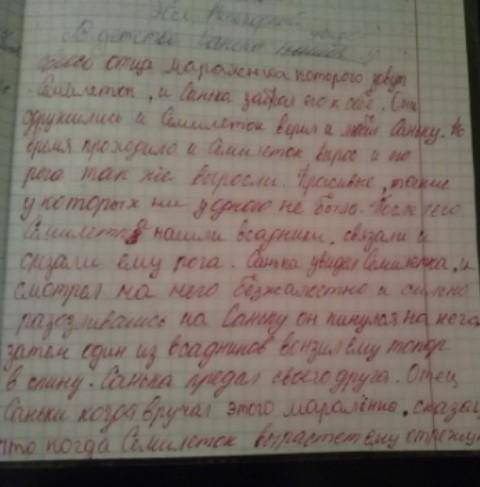 В детстве Санька
своего отца мараленка которого зовут
Семилеток, и Санька забрал его к себе. Они
сдружились и Семилеток верил и любил Саньку. Но
время проходило и Семилеток вырос и по
рога так же выросли. Красивые, такие
у которых ни у одного не было. После чего
Семилетка нашли всадники, связали и
срезали ему рога. Санька увидел Семилетка, и
смотрел на него безжалостно и сильно
разозлившись на Саньку он кинулся на него
затем один из всадников вонзил ему топор
в спину. Санька предал своего друга. Отец
Саньки когда вручал этого мараленка, сказал
что когда Семилеток вырастет ему отрежут